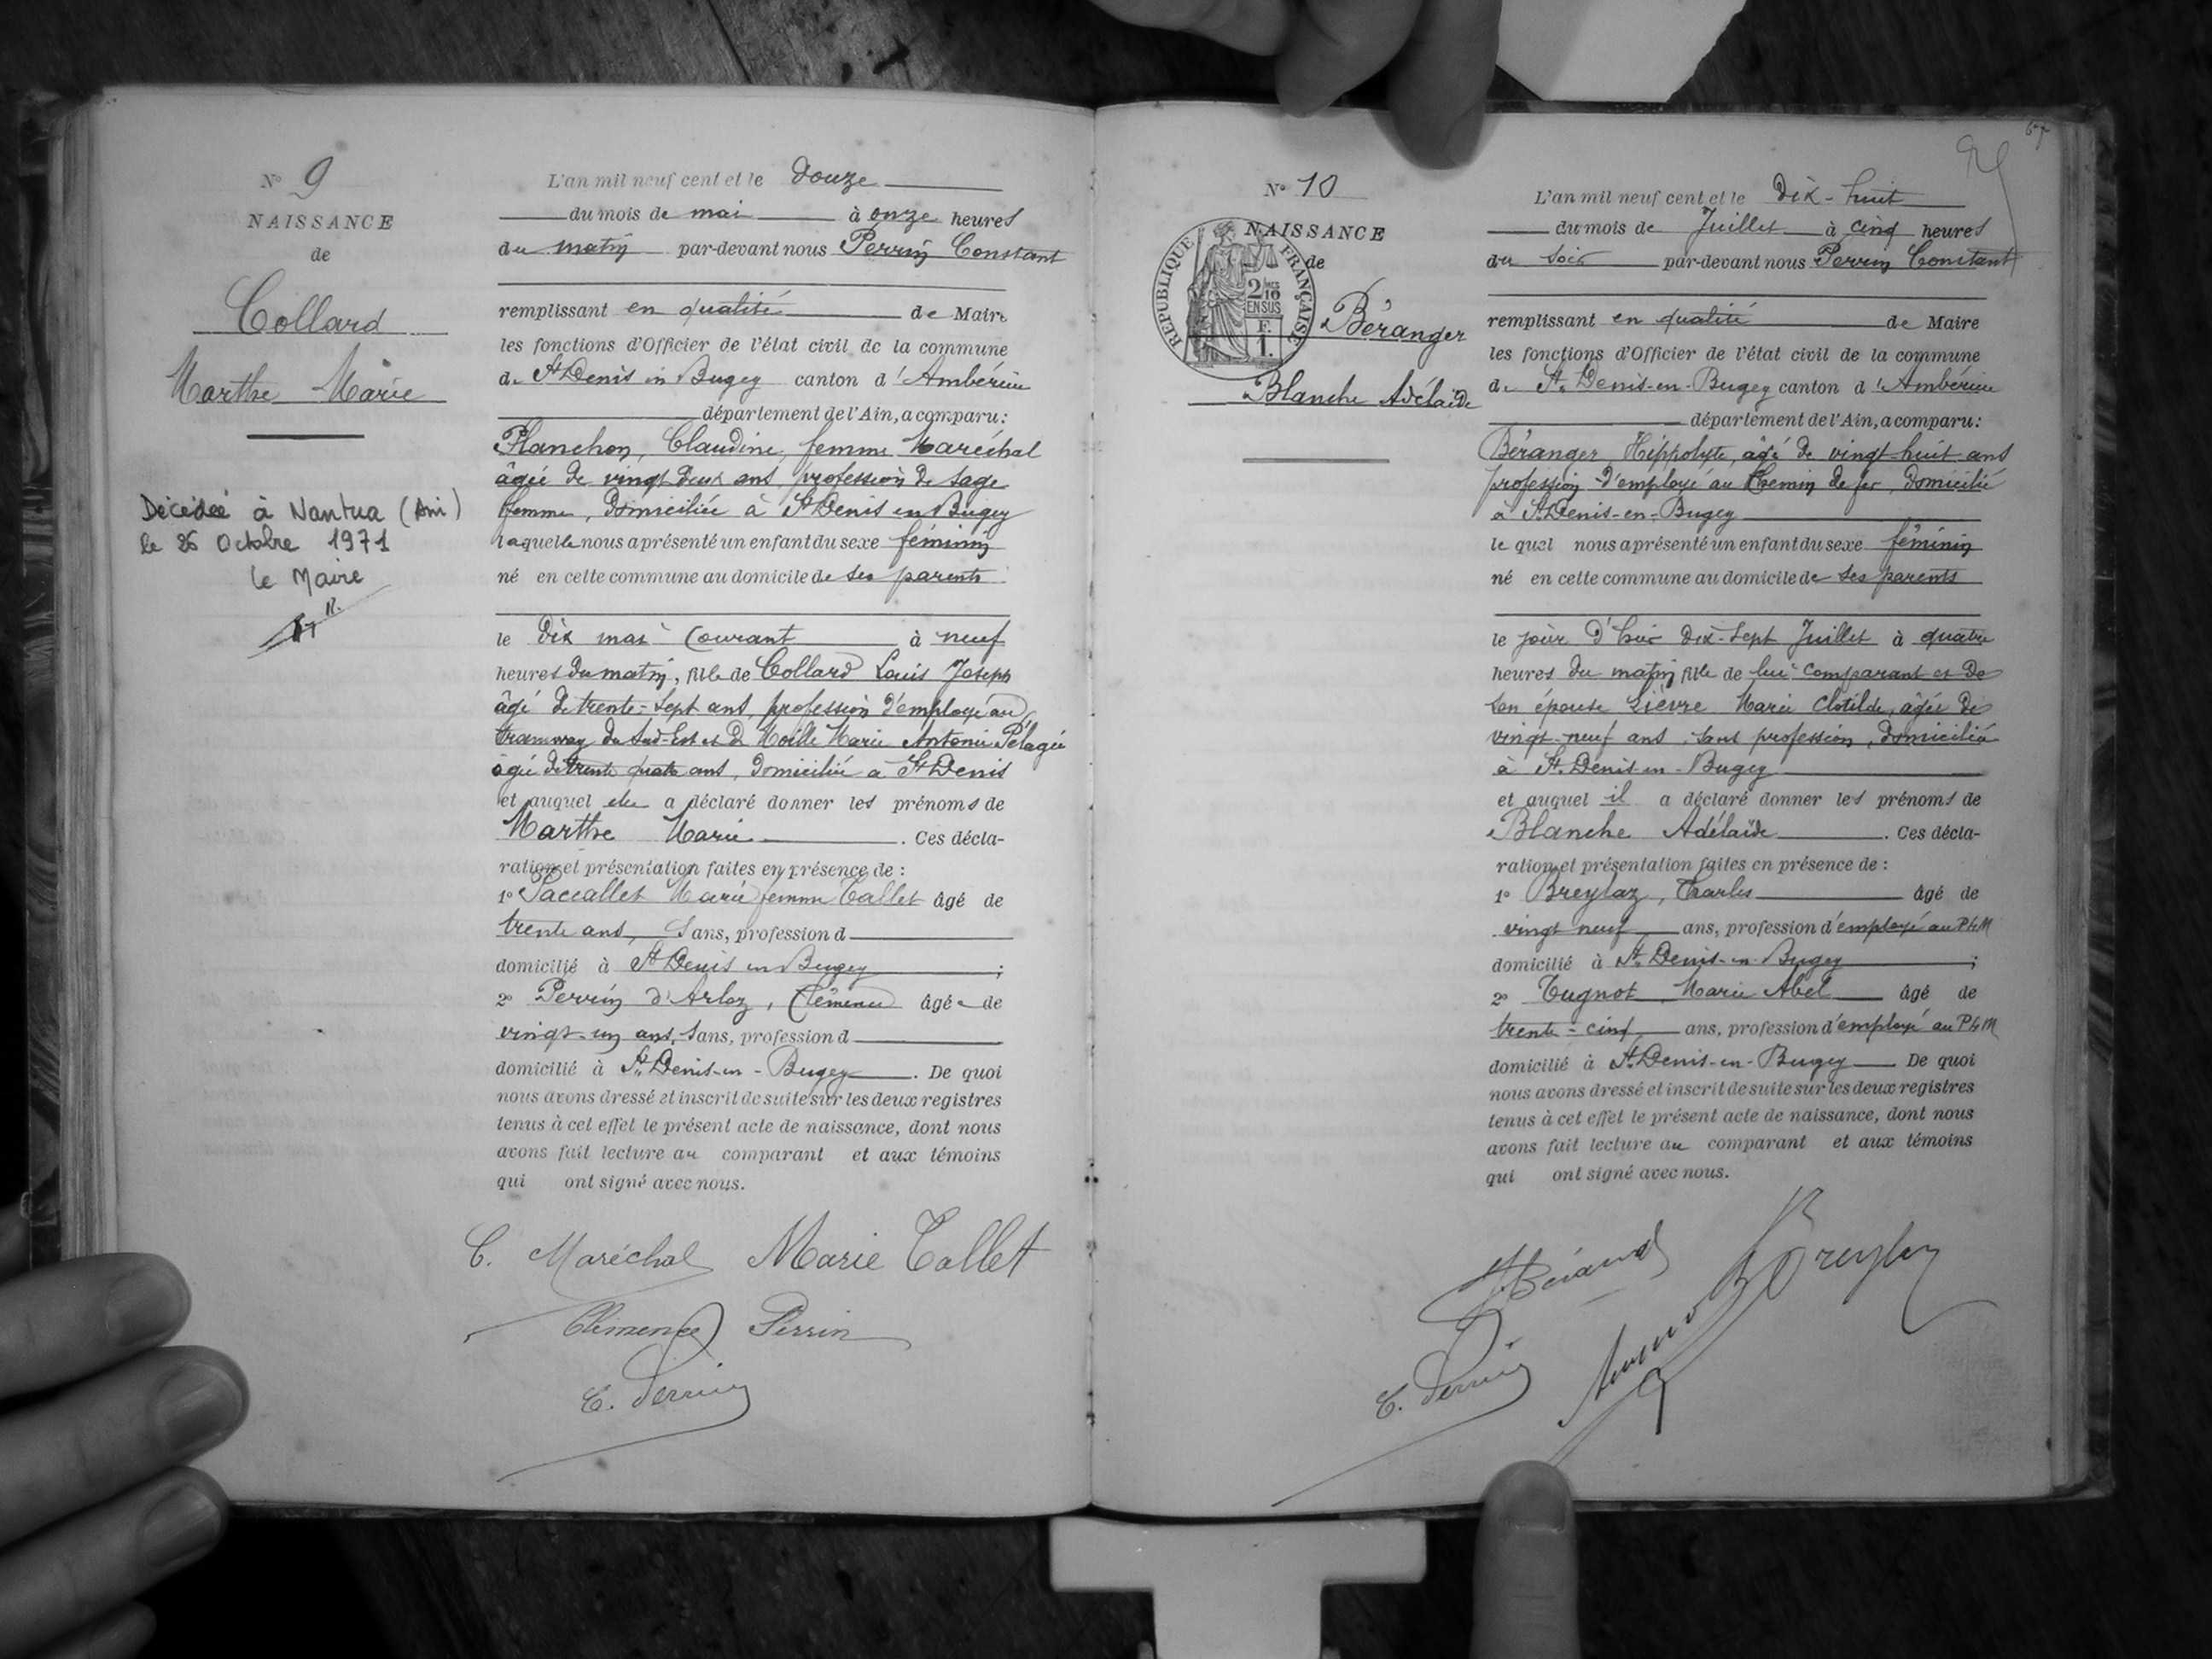 N° 9
NAISSANCE
de
Collard
Marthe Marie
Décédée à Nantua (Ain)
le 26 Octobre 1971
le Maire
L'an mil neuf cent et le douze
du mois de mai à onze heures
du matin par-devant nous Perrin Constant
remplissant en qualité de Maire
les fonctions d'Officier de l'état civil de la commune
de St Denis en Bugey canton d'Ambérieu
département de l'Ain, a comparu :
Planchon, Claudine, femme Maréchal
âgée de vingt deux ans, profession de sage
femme, domiciliée à St Denis en Bugey
laquelle nous a présenté un enfant du sexe féminin
né en cette commune au domicile de ses parents
le dix mai courant à neuf
heures du matin, fille de Collard Louis Joseph
âgé de trente-sept ans, profession d'employé au
tramway du Sud-Est et de Moille Marie Antonie Pélagie
agée de trente quatre ans, domiciliée à St Denis
et auquel elle a déclaré donner les prénoms de
Marthe Marie. Ces décla-
ration et présentation faites en présence de :
1° Paccallet Marie femme Tallet âgé de
trente ans, Sans, profession d
domicilié à St Denis en Bugey ;
2° Perrin d'Arloz, Clémence âgée de
vingt-un ans, Sans, profession d
domicilié à St. Denis-en-Bugey. De quoi
nous avons dressé et inscrit de suite sur les deux registres
tenus à cet effet le présent acte de naissance, dont nous
avons fait lecture au comparant et aux témoins
qui ont signé avec nous.
C. Maréchal Marie Tallet
Clémence Perrin
C. Perrin
67
N° 10
NAISSANCE
de
RÉPUBLIQUE FRANÇAISE
2/10
EN SUS
F.
1.
Béranger
Blanche Adélaïde
L'an mil neuf cent et le dix-huit
du mois de Juillet à cinq heures
du soir par-devant nous Perrin Constant
remplissant en qualité de Maire
les fonctions d'Officier de l'état civil de la commune
de St. Denis-en-Bugey canton d'Ambérieu
département de l'Ain, a comparu :
Béranger Hippolyte, âgé de vingt-huit ans
profession d'employé au Chemin de fer, domicilié
à St. Denis-en-Bugey
le quel nous a présenté un enfant du sexe féminin
né en cette commune au domicile de ses parents
le jour d'hier dix-sept Juillet à quatre
heures du matin, fille de lui comparant et de
son épouse Lièvre Marie Clotilde, âgée de
vingt-neuf ans, sans profession, domiciliée
à St. Denis-en-Bugey
et auquel il a déclaré donner les prénoms de
Blanche Adélaïde. Ces décla-
ration et présentation faites en présence de :
1° Breylaz, Charles âgé de
vingt neuf ans, profession d'employé au PLM
domicilié à St. Denis-en-Bugey ;
2° Tugnot Marie Abel âgé de
trente-cinq ans, profession d'employé au PLM
domicilié à St. Denis-en-Bugey De quoi
nous avons dressé et inscrit de suite sur les deux registres
tenus à cet effet le présent acte de naissance, dont nous
avons fait lecture au comparant et aux témoins
qui ont signé avec nous.
Breylaz
C. Perrin